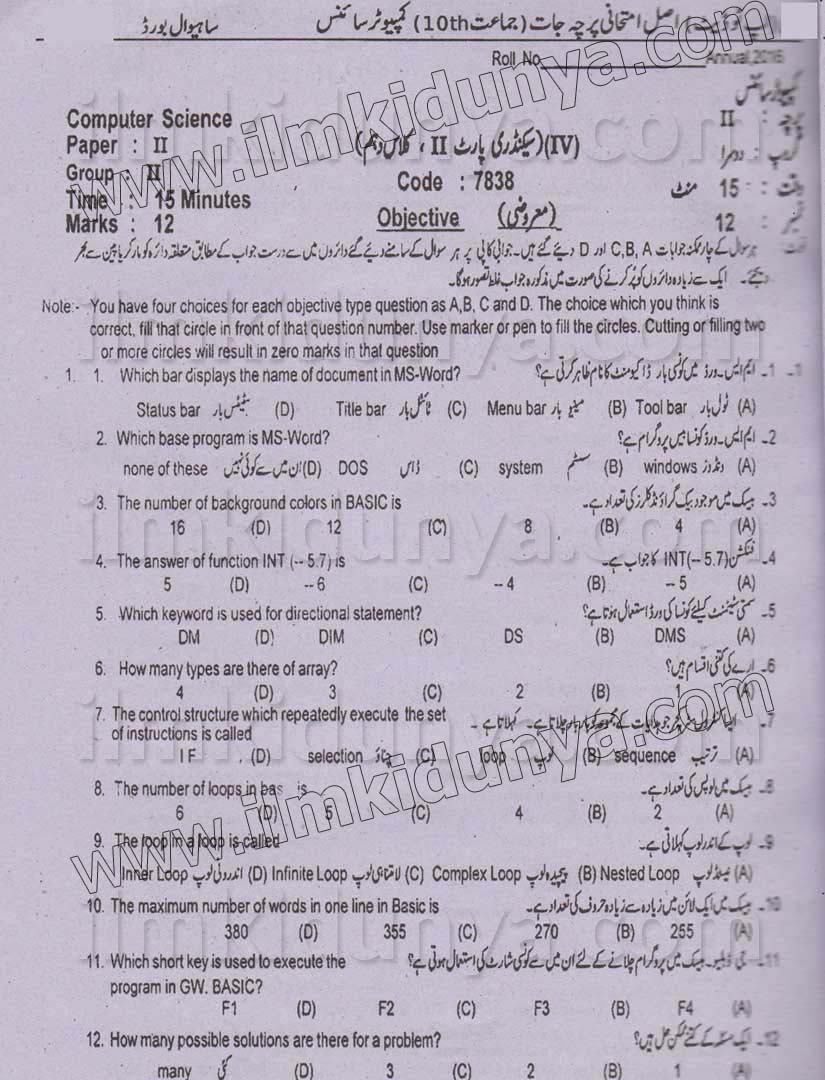 اصل امتحانی پرچہ جات (جماعت 10th) کمپیوٹر سائنس ساہیوال بورڈ
Roll No Annual, 2016
Computer Science کمپیوٹر سائنس
Paper : II (IV) (سیکنڈری پارٹ II ، کلاس دہم) پرچہ : II
Group : II Code : 7838 گروپ : دوسرا
Time : 15 Minutes وقت : 15 منٹ
Marks : 12 Objective (معروضی) نمبر : 12
نوٹ ہر سوال کے چار ممکنہ جوابات C,B, A اور D دیئے گئے ہیں۔ جوابی کاپی پر ہر سوال کے سامنے دیئے گئے دائروں میں سے درست جواب کے مطابق متعلقہ دائرہ کو مارکر یا پین سے بھر
دیجئے۔ ایک سے زیادہ دائروں کو پُر کرنے کی صورت میں مذکورہ جواب غلط تصور ہوگا۔
Note:- You have four choices for each objective type question as A,B, C and D. The choice which you think is
correct, fill that circle in front of that question number. Use marker or pen to fill the circles. Cutting or filling two
or more circles will result in zero marks in that question
1. 1. Which bar displays the name of document in MS-Word? ایم ایس۔ورڈ میں کونسی بار ڈاکیومنٹ کا نام ظاہر کرتی ہے؟ -1 -1
Status bar سٹیٹس بار (D) Title bar ٹائٹل بار (C) Menu bar مینیو بار (B) Tool bar ٹول بار (A)
2. Which base program is MS-Word? ایم ایس۔ورڈ کونسا بیس پروگرام ہے؟ -2
none of these ان میں سے کوئی نہیں (D) DOS ڈاس (C) system سسٹم (B) windows ونڈوز (A)
3. The number of background colors in BASIC is بیسک میں موجود بیک گراؤنڈ کلرز کی تعداد ہے۔ -3
16 (D) 12 (C) 8 (B) 4 (A)
4. The answer of function INT (-- 5.7) is فنکشن INT(-- 5.7) کا جواب ہے۔ -4
5 (D) -- 6 (C) -- 4 (B) -- 5 (A)
5. Which keyword is used for directional statement? سمتی سٹیٹمنٹ کیلئے کونسا کی ورڈ استعمال ہوتا ہے؟ -5
DM (D) DIM (C) DS (B) DMS (A)
6. How many types are there of array? ارے کی کتنی اقسام ہیں؟ -6
4 (D) 3 (C) 2 (B) 1 (A)
7. The control structure which repeatedly execute the set ایسا کنٹرول سٹرکچر جو ہدایات کے مجموعہ کو بار بار چلاتا ہے۔ کہلاتا ہے ۔ -7
of instructions is called
I F (D) selection چناؤ (C) loop لوپ (B) sequence ترتیب (A)
8. The number of loops in bas is بیسک میں لوپس کی تعداد ہے۔ -8
6 (D) 5 (C) 4 (B) 2 (A)
9. The loop in a loop is called لوپ کے اندر لوپ کہلاتی ہے۔ -9
Inner Loop اندرونی لوپ (D) Infinite Loop لامتناہی لوپ (C) Complex Loop پیچیدہ لوپ (B) Nested Loop نیسٹڈ لوپ (A)
10. The maximum number of words in one line in Basic is بیسک میں ایک لائن میں زیادہ سے زیادہ حروف کی تعداد ہے۔ -10
380 (D) 355 (C) 270 (B) 255 (A)
11. Which short key is used to execute the جی ڈبلیو۔بیسک میں پروگرام چلانے کے لئے ان میں سے کونسی شارٹ کی استعمال ہوتی ہے؟ -11
program in GW. BASIC?
F1 (D) F2 (C) F3 (B) F4 (A)
12. How many possible solutions are there for a problem? ایک مسئلہ کے کتنے ممکن حل ہیں؟ -12
many کئی (D) 3 (C) 2 (B) 1 (A)
www.ilmkidunya.com
www.ilmkidunya.com
ilmkidunya.com
ilmkidunya.com
ilmkidunya.com
ilmkidunya.com
ilmkidunya.com